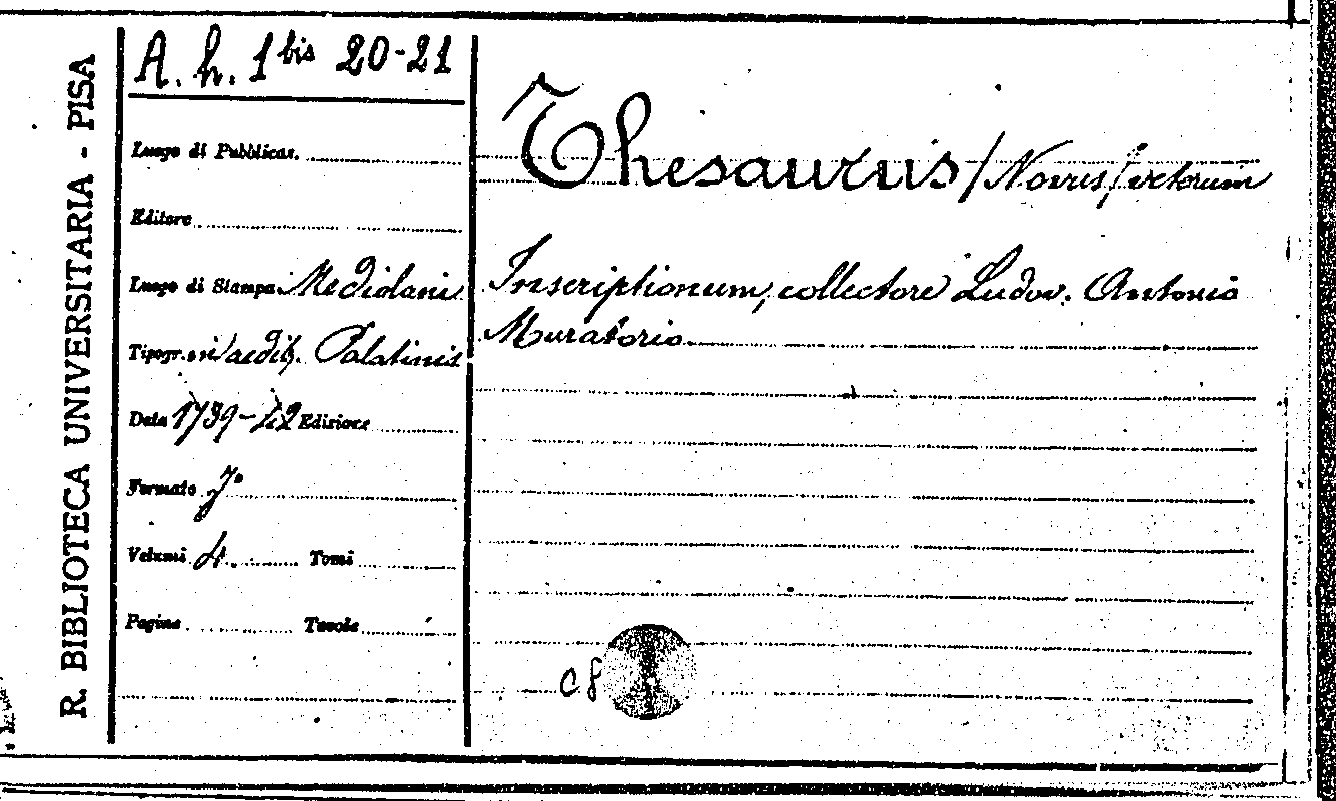 R. BIBLIOTECA UNIVERSITARIA - PISA
A. h. 1 bis 20-21
Luogo di Pubblicaz.
Editore
Luogo di Stampa Mediolani
Tipogr. aedib. Palatinis
Data 1739-42 Edizione
Formato
Volumi 4. Tomi
Pagine Tavole
Thesaurus / Novus / veterum
Inscriptionum, collectore Ludov. Antonio
Muratorio
c 8